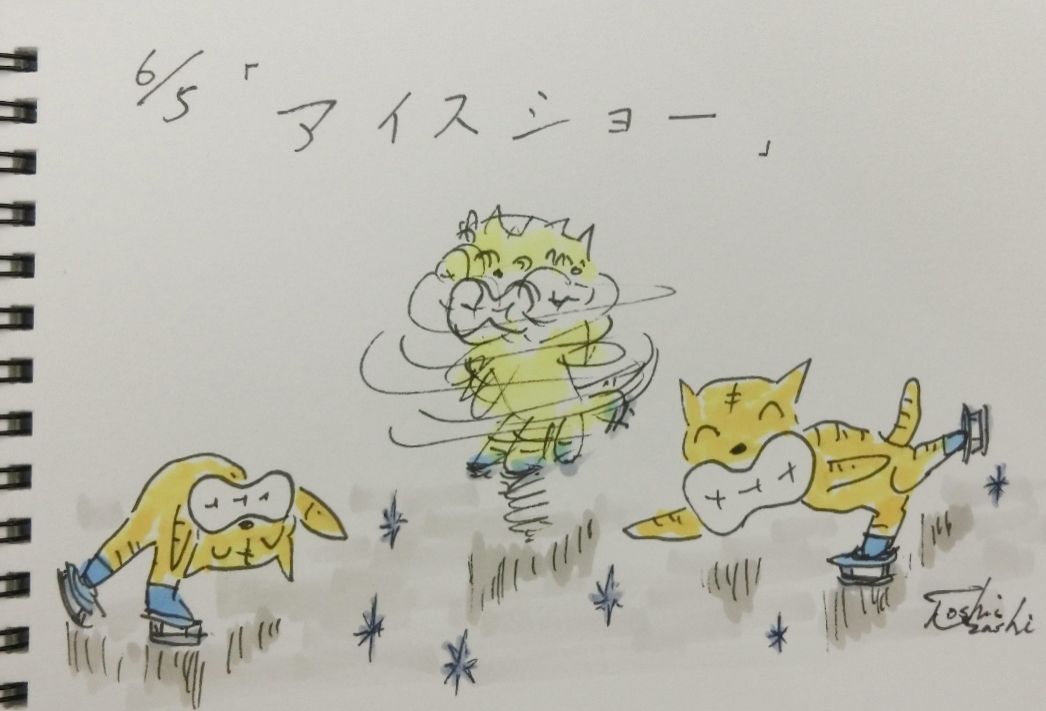 6/5「アイスショー」
Toshi
zashi